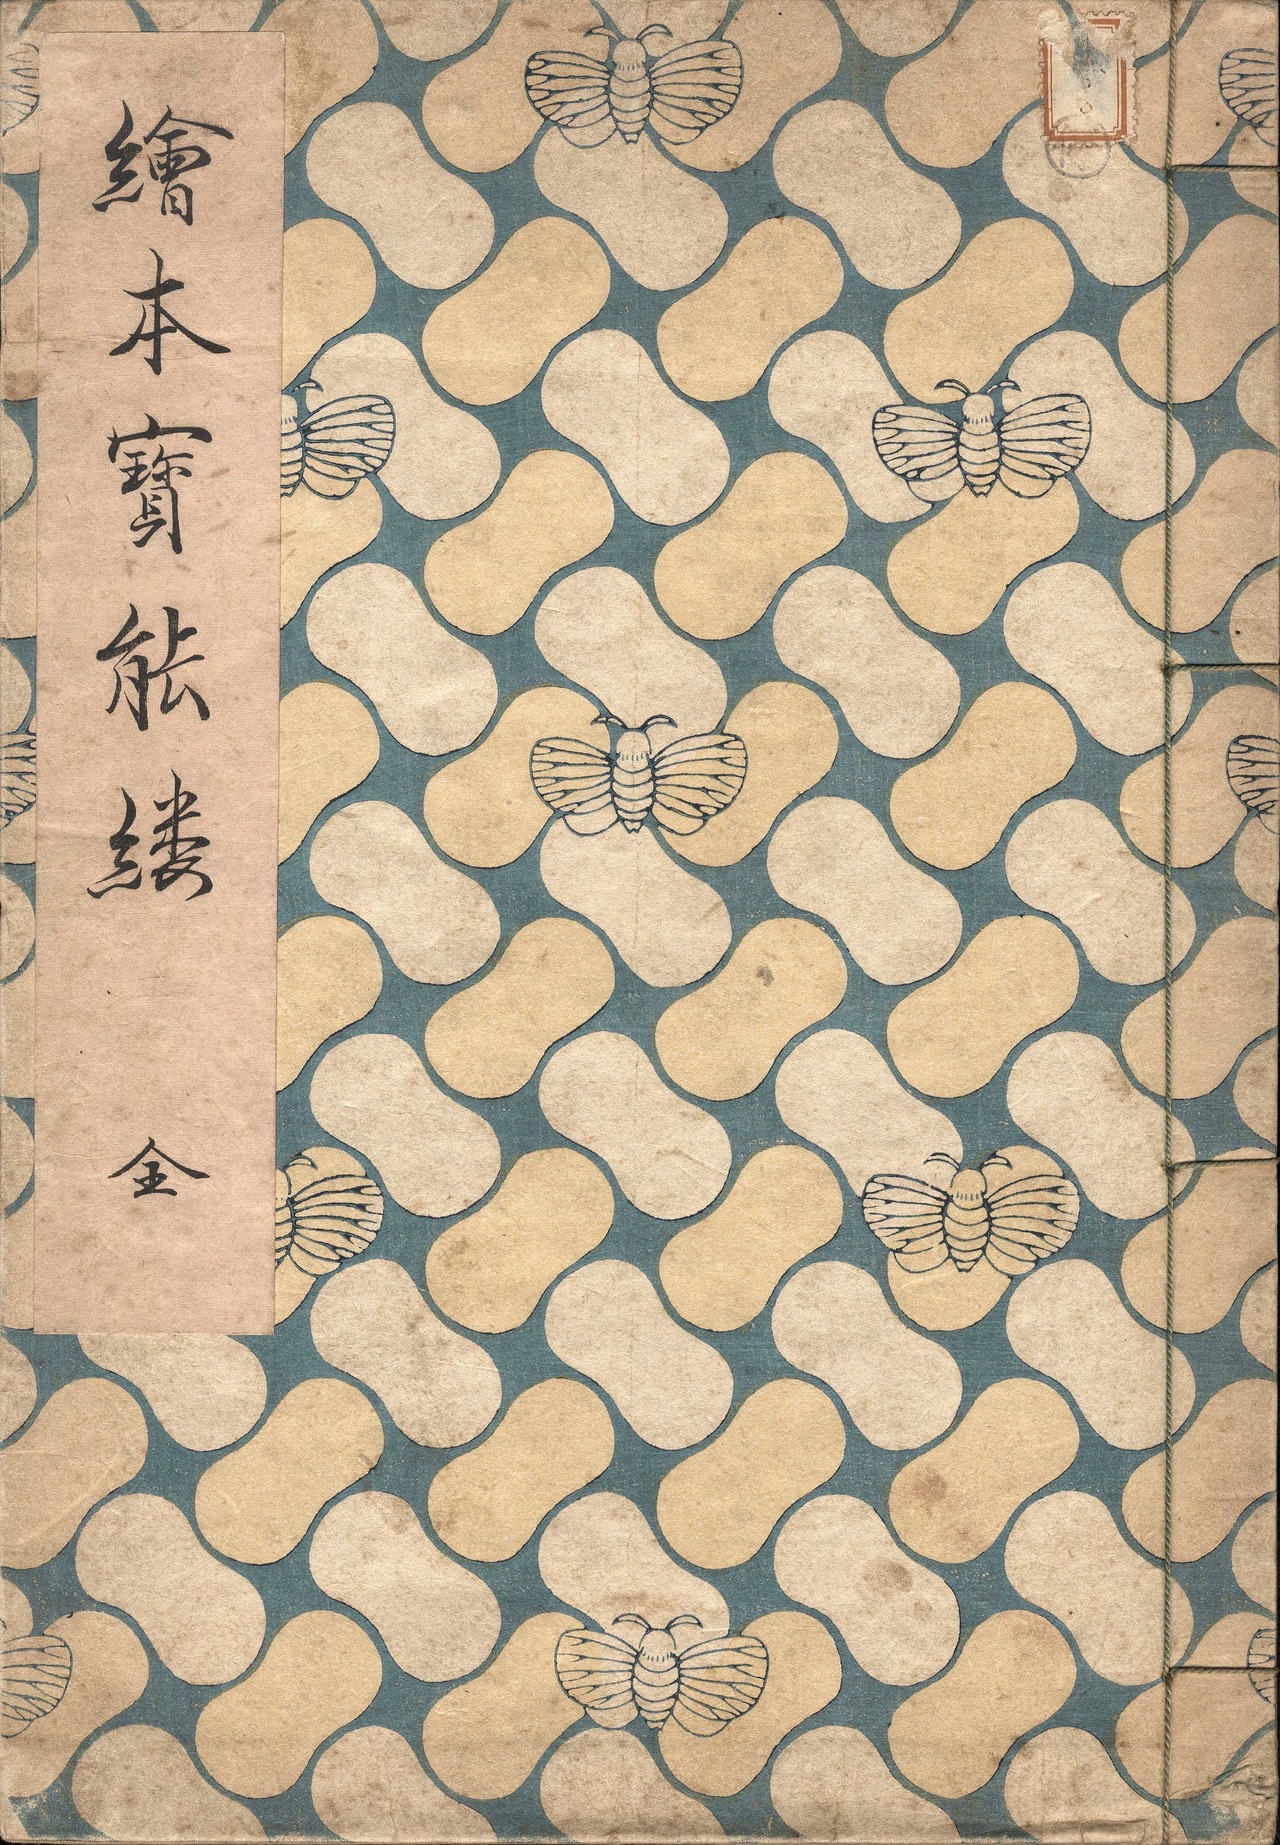 繪本寶能縷
全